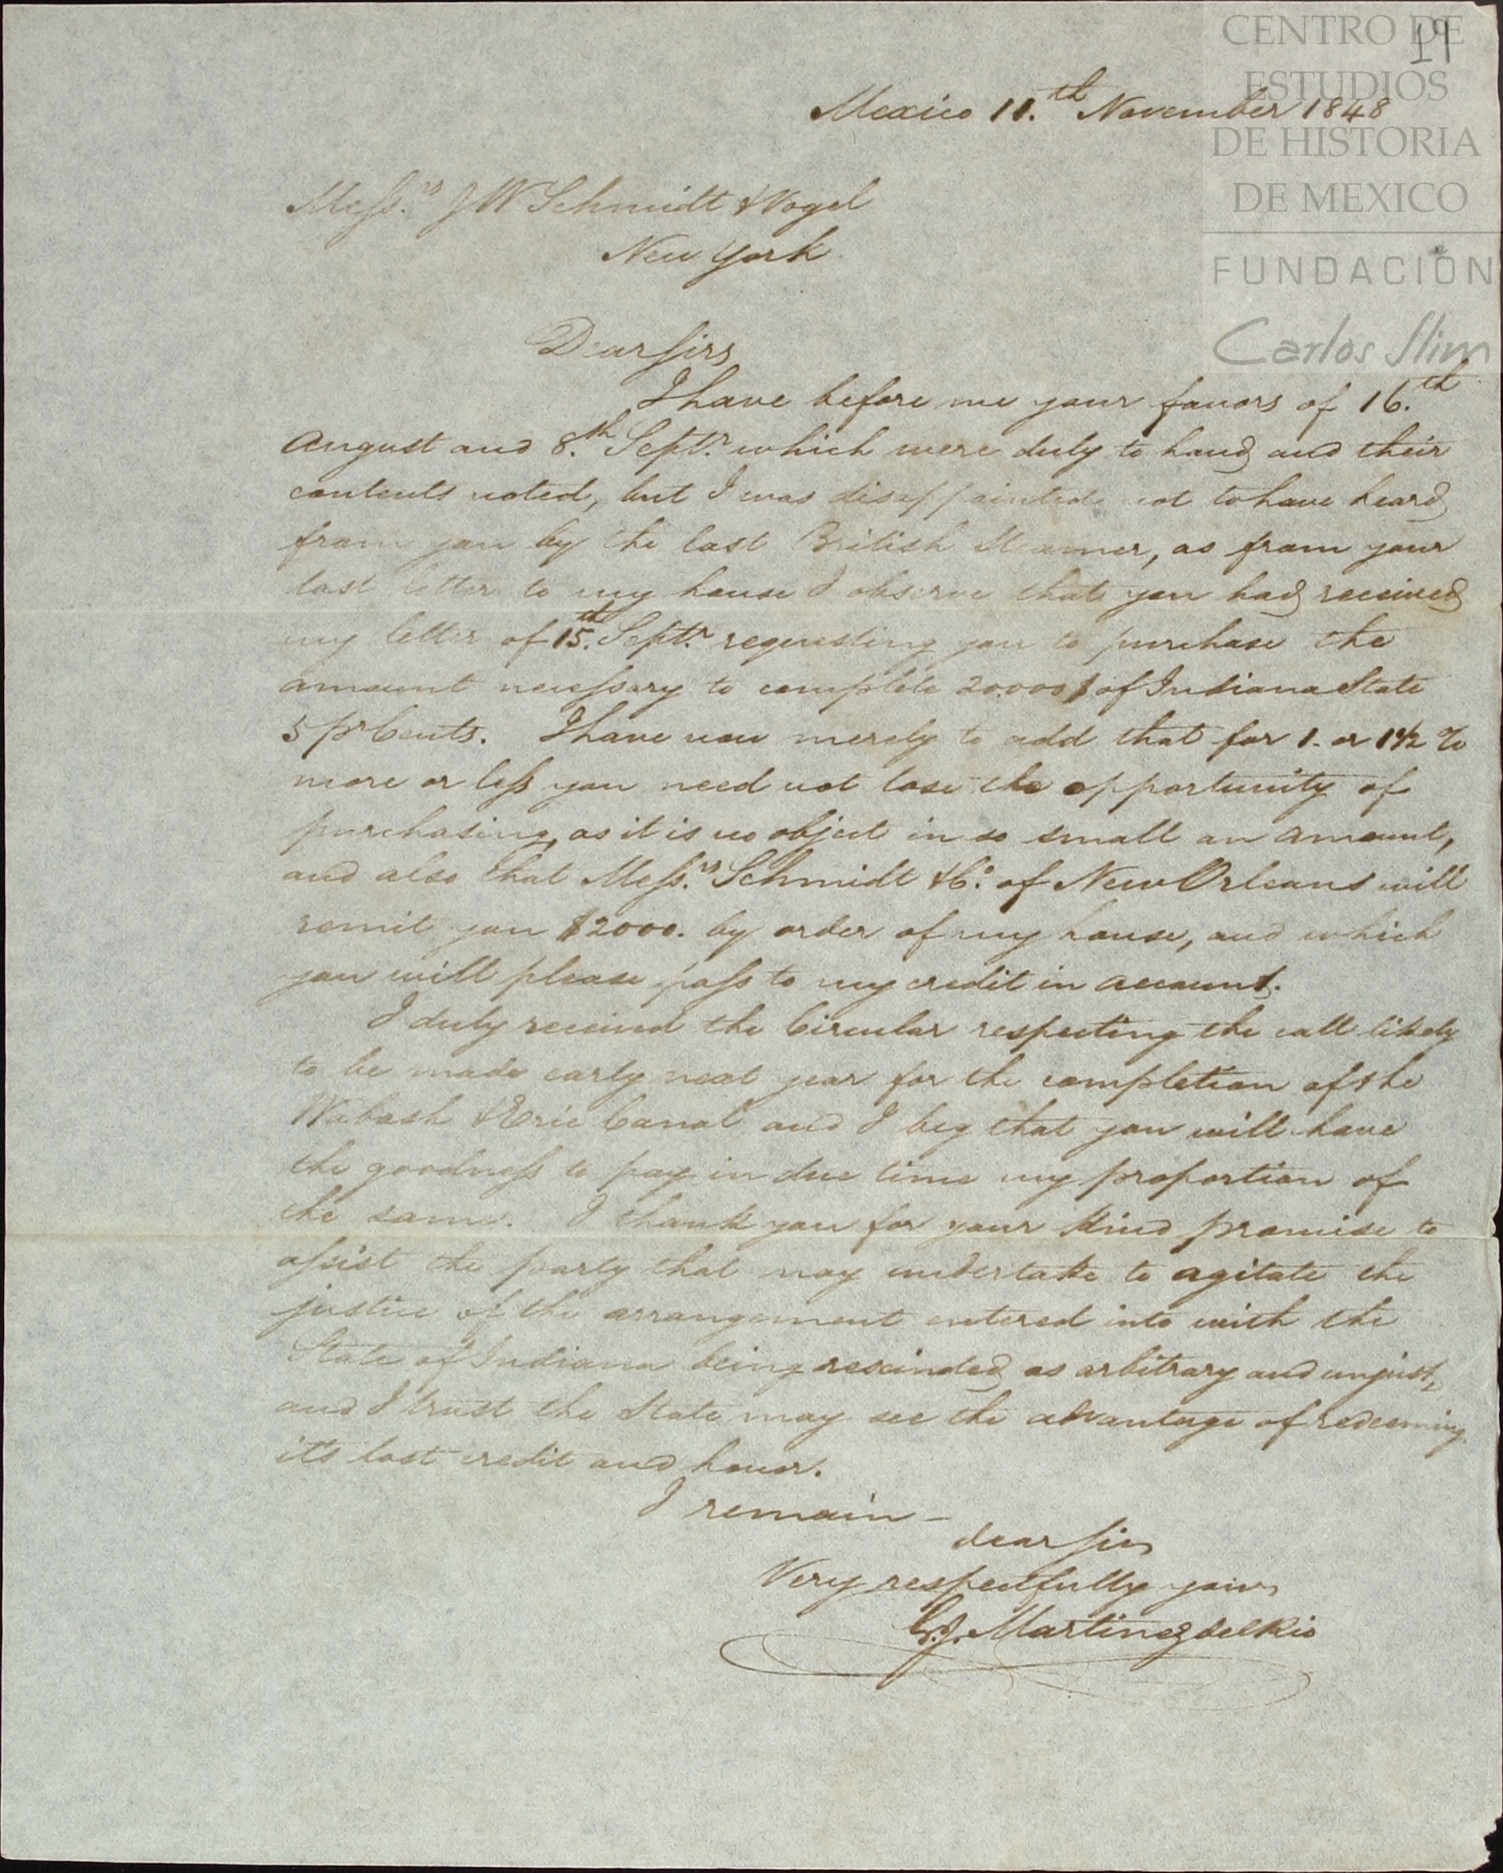 CENTRO DE
ESTUDIOS
DE HISTORIA
DE MEXICO
FUNDACIÓN
Carlos Slim
19
Mexico 11.th November 1848
Mess.rs J W Schmidt & Vogel
New York
Dear Sirs
I have before me your favors of 16.th
August and 8.th Sept.r which were duly to hand and their
contents noted, but I was disappointed not to have heard
from you by the last British Steamer, as from your
last letter to my house I observe that you had received
my letter of 15.th Sept.r requesting you to purchase the
amount necessary to complete 20.000$ of Indiana State
5 pr Cents. I have now merely to add that for 1. or 1 1/2 %
more or less you need not lose the opportunity of
purchasing, as it is no object in so small an amount,
and also that Mess.rs Schmidt & Co. of New Orleans will
remit you $2000. by order of my house, and which
you will please pass to my credit in account.
I duly received the Circular respecting the call likely
to be made early next year for the completion of the
Wabash & Erie Canal and I beg that you will have
the goodness to pay in due time my proportion of
the same. I thank you for your kind promise to
assist the party that may undertake to agitate the
justice of the arrangement entered into with the
State of Indiana being rescinded as arbitrary and unjust,
and I trust the State may see the advantage of redeeming
it's lost credit and honor.
I remain –
dear Sirs
Very respectfully yours
G.J. Martinez del Rio